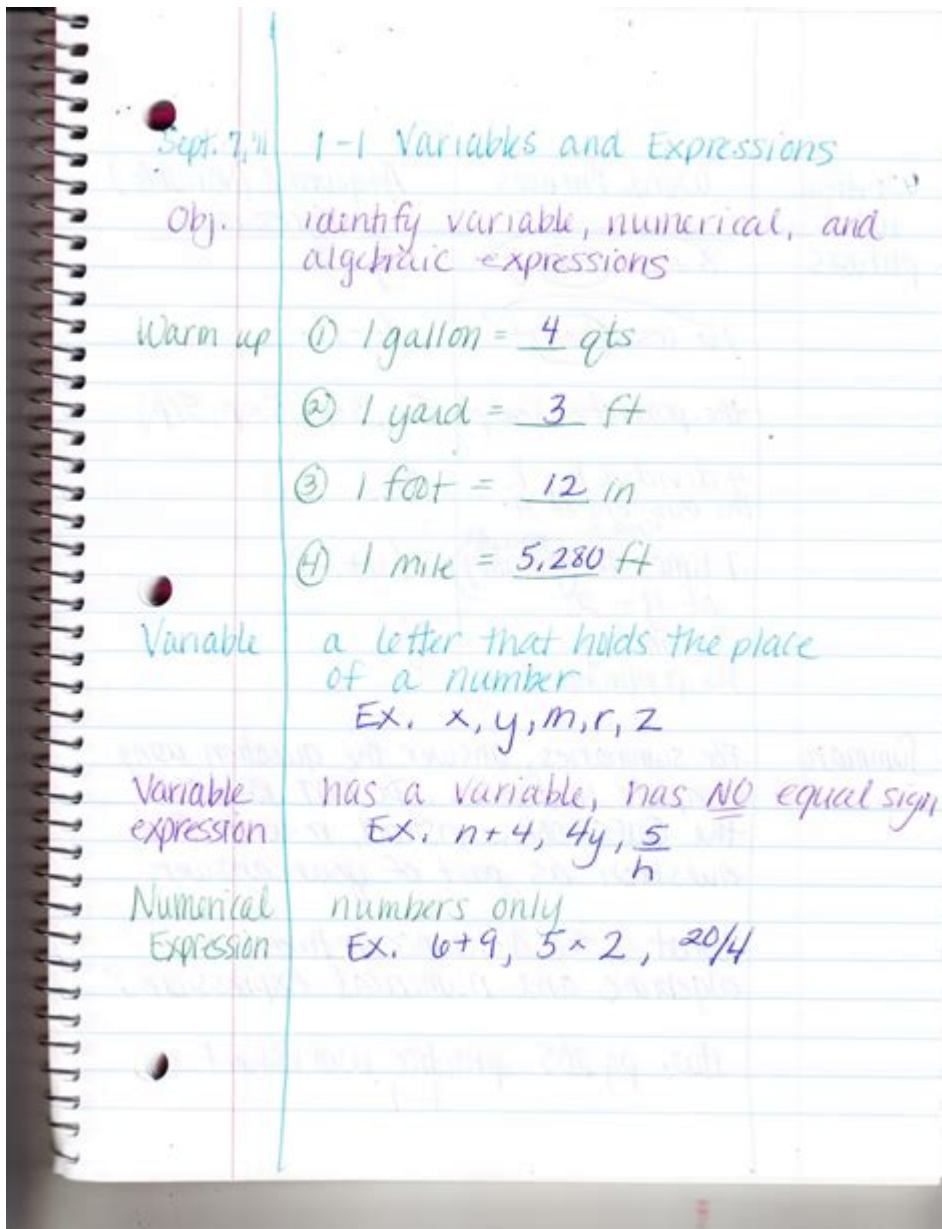 Sept. 7, '11 1-1 Variables and Expressions
Obj. identify variable, numerical, and
algebraic expressions
Warm up ① 1 gallon = 4 qts
② 1 yard = 3 ft
③ 1 foot = 12 in
④ 1 mile = 5,280 ft
Variable a letter that holds the place
of a number
Ex. x, y, m, r, z
Variable has a variable, has NO equal sign
expression Ex. n+4, 4y, 5/h
Numerical numbers only
Expression Ex. 6+9, 5 × 2, 20/4